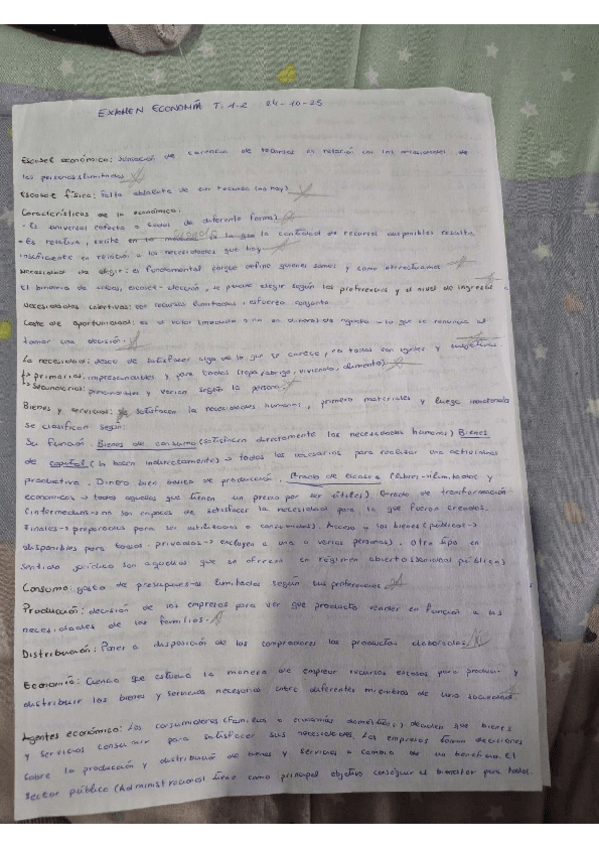 EXAMEN ECONOMÍA T. 1.2 24-10-25
Escasez económica: situación de carencia de recursos en relación con las necesidades de
las personas ilimitadas
Escasez física: falta absoluta de un recurso (no hay)
Características de la económica:
- Es universal (afecta a todos de diferente forma)
- Es relativa, existe en la que la cantidad de recursos disponibles resulta
insuficiente en relación a las necesidades que hay
Necesidad de elegir: es fundamental porque define quienes somos y como
El binomio de escasez-elección, se puede elegir según las preferencias y el nivel de ingresos
Necesidades colectivas: con recursos limitados, esfuerzo conjunto
Coste de oportunidad: es el valor (medido o no en dinero) de aquello a lo que se renuncia al
tomar una decisión.
La necesidad: deseo de satisfacer algo de lo que se carece, no todas son iguales y subjetivas
↳ primarias: imprescindibles y para todos (ropa/abrigo, vivienda, alimento)
↳ secundarias: prescindibles y varían según la persona
Bienes y servicios: satisfacen las necesidades humanas, primero materiales y luego inmateriales
se clasifican según:
Su función. Bienes de consumo (satisfacen directamente las necesidades humanas) Bienes
de capital (lo hacen indirectamente) → todos los necesarios para realizar una actividad
productiva. Dinero bien básico de producción. Grado de escasez (libres-ilimitados y
económicos → todos aquellos que tienen un precio por ser útiles). Grado de transformación
(intermedios → no son capaces de satisfacer la necesidad para la que fueron creados.
Finales → preparados para ser utilizados o consumidos). Acceso a los bienes (públicos →
disponibles para todos. privados → excluyen a una o varias personas). Otro tipo en
sentido jurídico son aquellos que se ofrecen en régimen abierto (sanidad pública)
Consumo: gasto de presupuestos limitados según sus preferencias
Producción: decisión de las empresas para ver que producto vender en función a las
necesidades de las familias.
Distribución: Poner a disposición de los compradores los productos elaborados.
Economía: Ciencia que estudia la manera de emplear recursos escasos para producir y
distribuir los bienes y servicios necesarios entre diferentes miembros de una sociedad.
Agentes económico: Los consumidores (familias o economías domésticas) deciden que bienes
y servicios consumir para satisfacer sus necesidades. Las empresas toman decisiones
sobre la producción y distribución de bienes y servicios a cambio de un beneficio. El
sector público (Administraciona) tiene como principal objetivo conseguir el bienestar para todos.